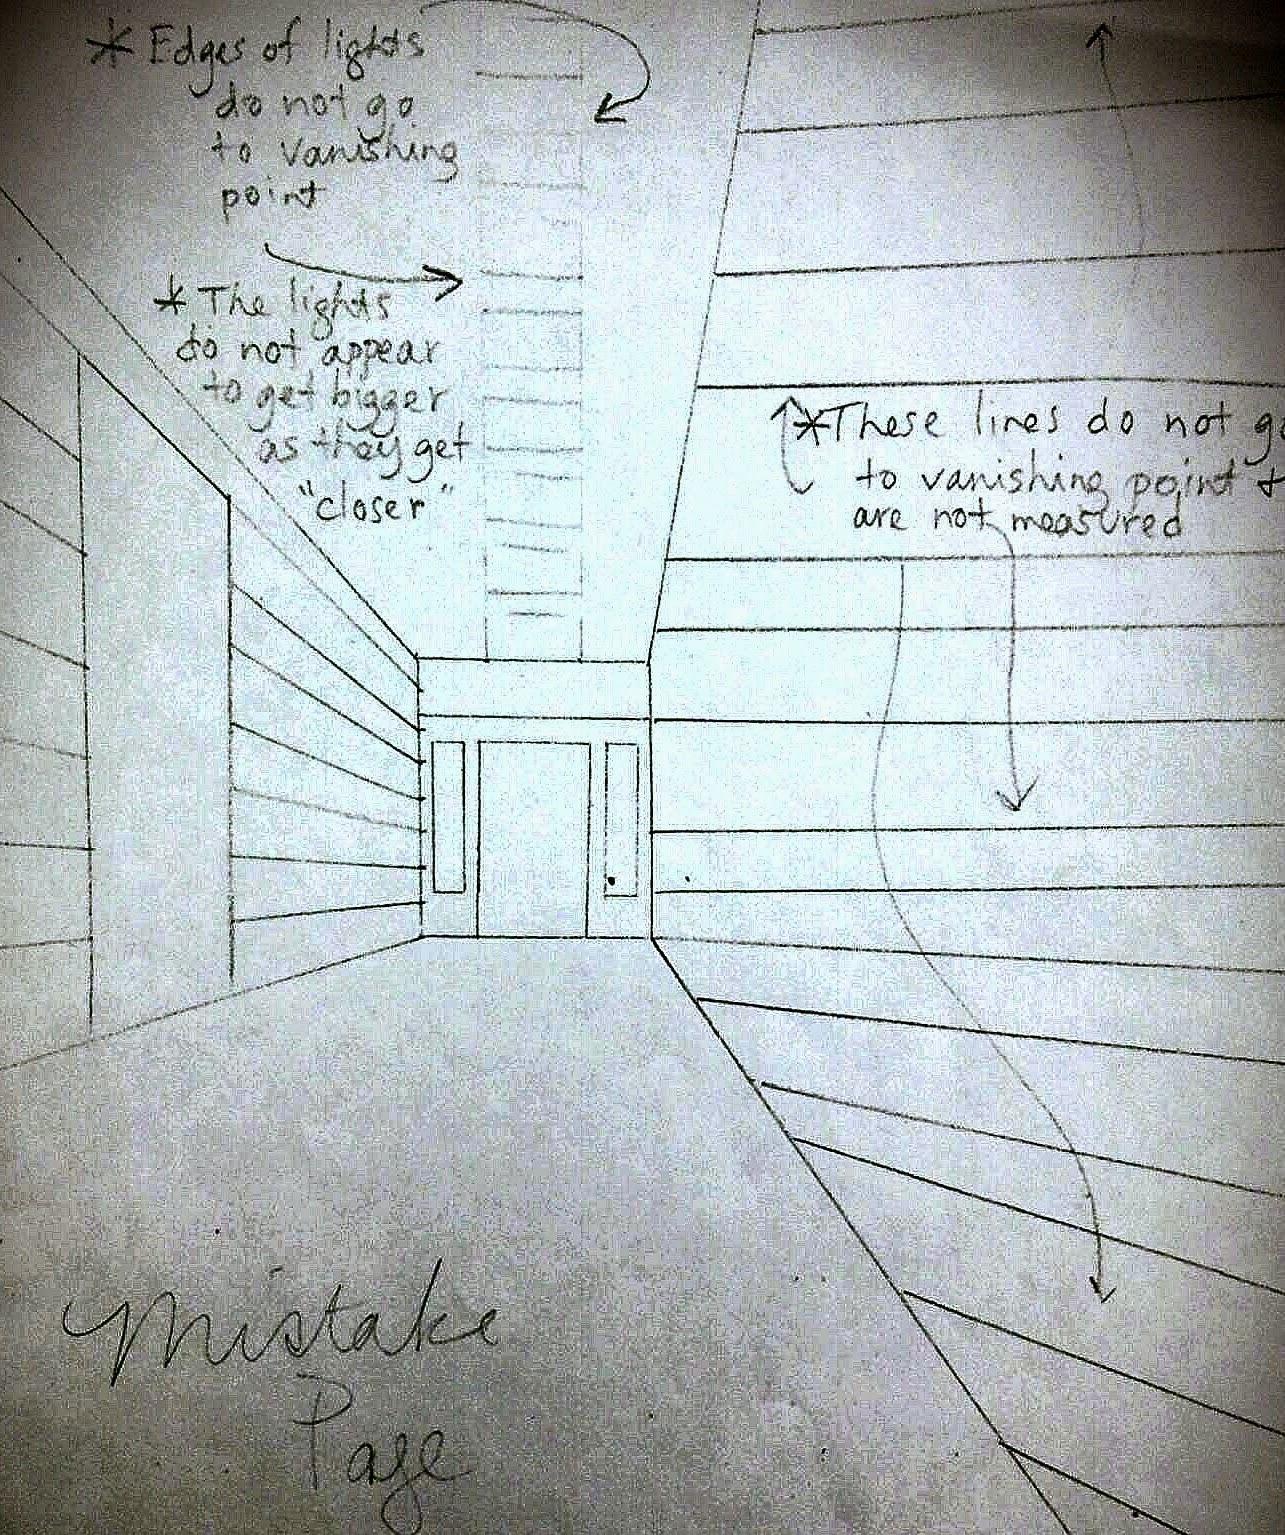 * Edges of lights
do not go
to vanishing
point
* The lights
do not appear
to get bigger
as they get
"closer"
*These lines do not go
to vanishing point +
are not measured
Mistake
Page